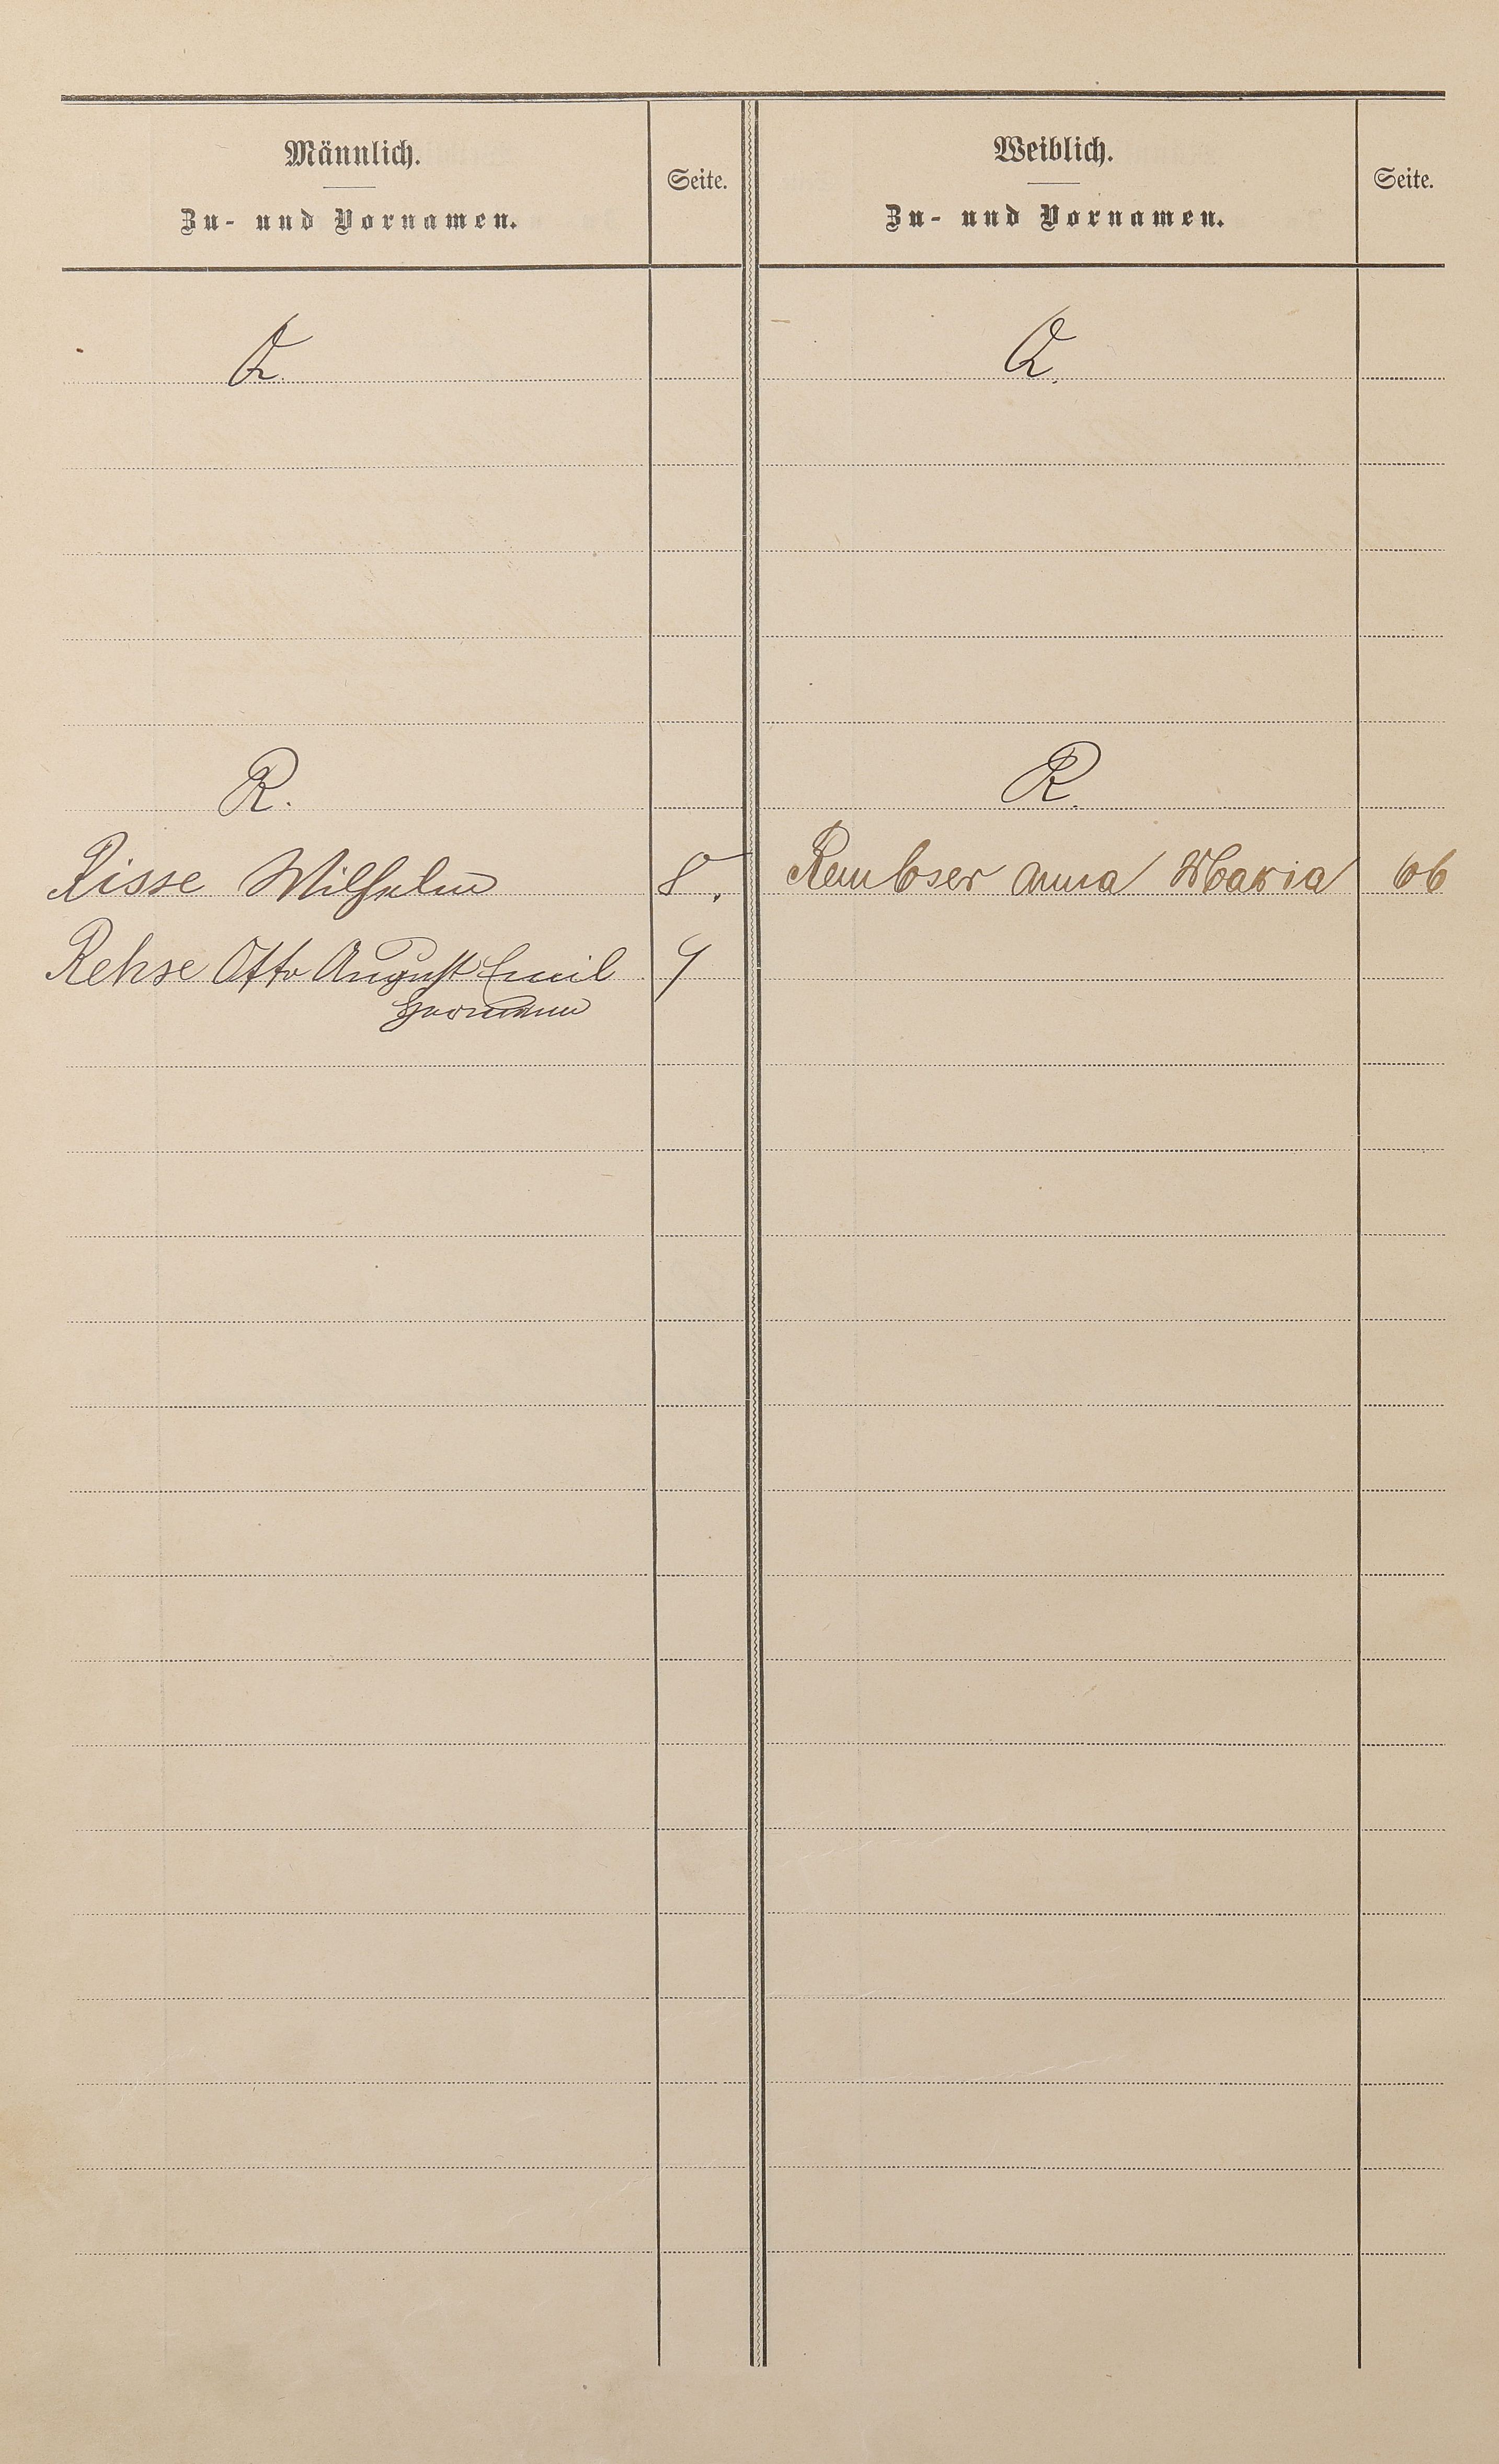 Männlich.
Zu- und Vornamen.
Seite.
Weiblich.
Zu- und Vornamen.
Seite.
Q.
Q.
R.
R.
Risse Wilhelm 8.
Remboser Anna Maria 66
Rehse Otto August Emil 9
Hermann